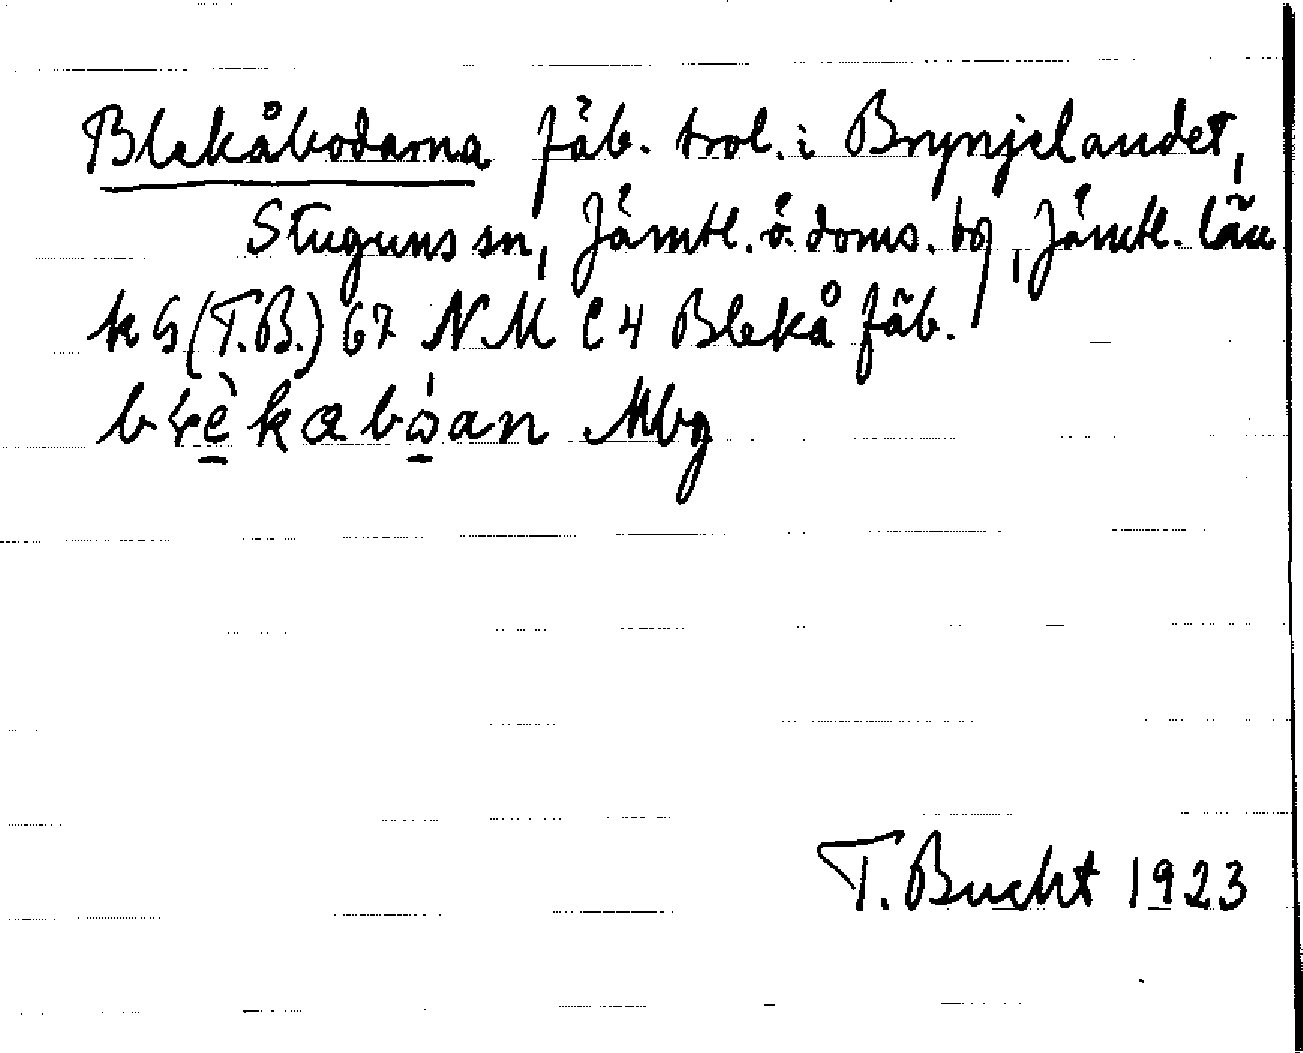 Blekåbodarna fäb. trol. i Brynjelandet,
Stuguns sn, Jämtl. ö. doms. tg, Jämtl. län
k G (T.B.) 67 NM C 4 Blekå fäb.
Mbg
T. Bucht 1923